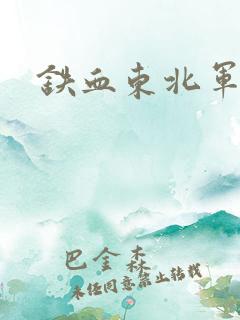 鉄血東北軍
巴金森
未经同意禁止转载